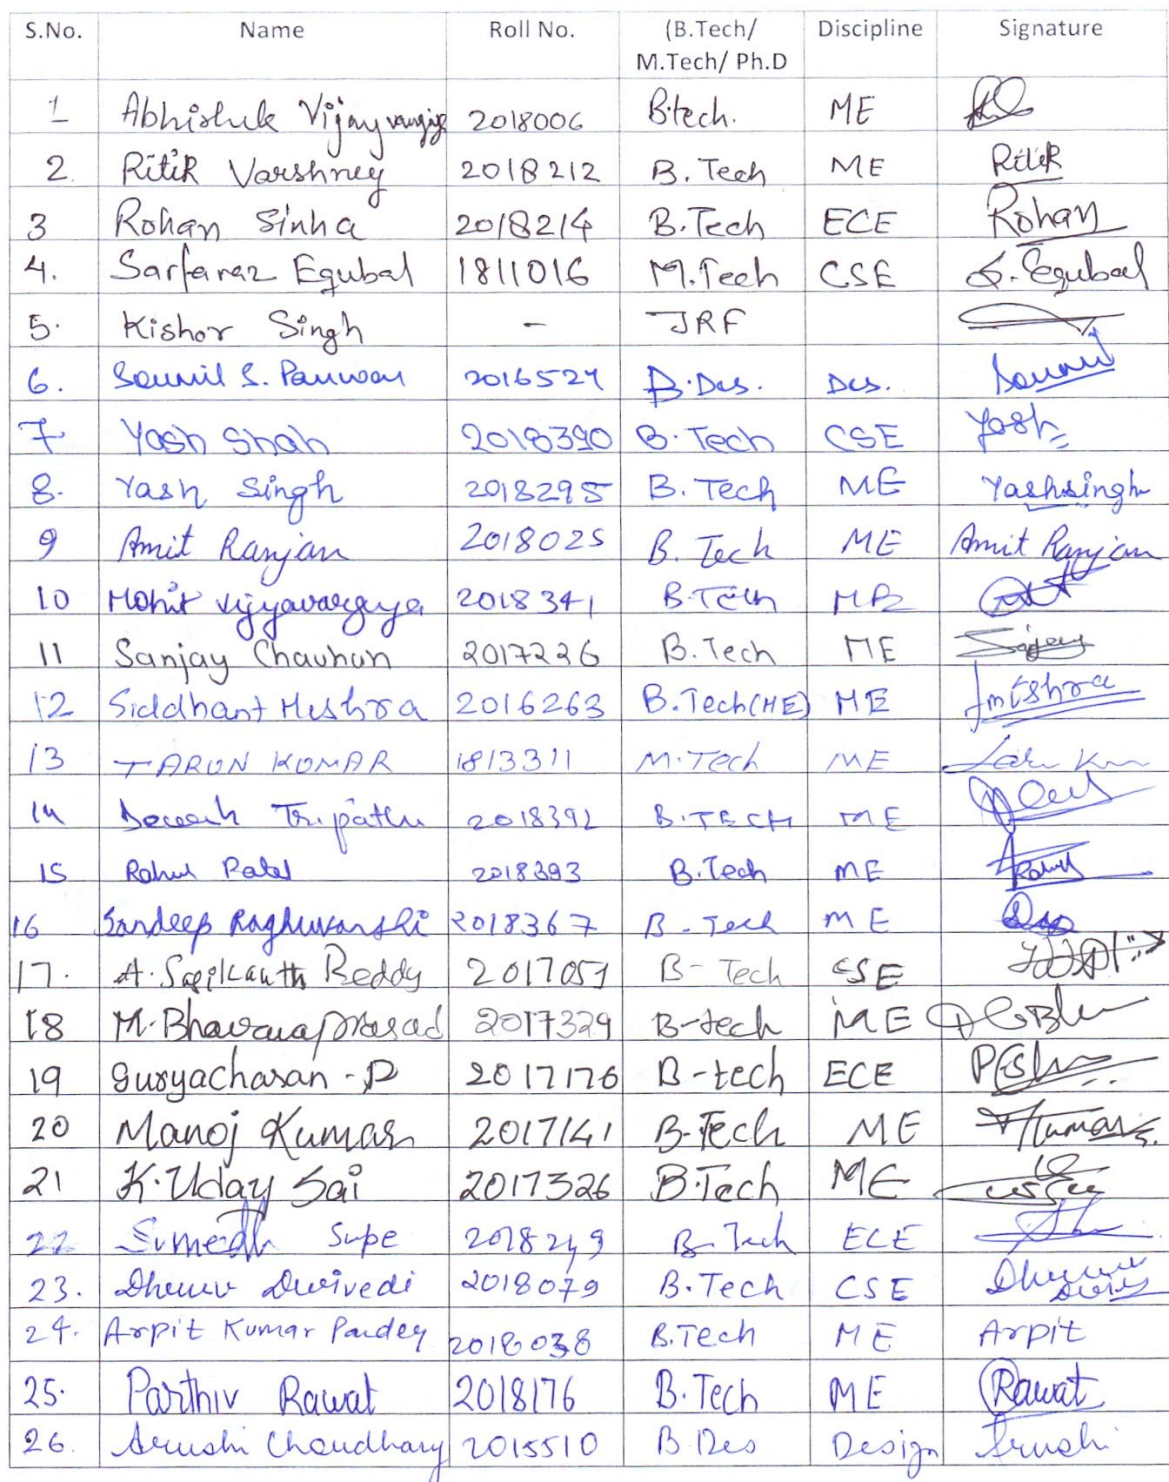 S.No. Name Roll No. (B.Tech/ M.Tech/ Ph.D Discipline Signature
1 Abhishek Vijayvargiya 2018006 B.tech. ME
2. Ritik Varshney 2018212 B. Tech ME Ritik
3 Rohan Sinha 2018214 B.Tech ECE Rohan
4. Sarfaraz Equbal 1811016 M.Tech CSE S. Equbal
5. Kishor Singh - JRF
6. Saumil S. Panwar 2016527 B.Des. Des. Saumil
7 Yash Shah 2018390 B.Tech CSE Yash
8. Yash Singh 2018295 B. Tech ME Yashsingh
9 Amit Ranjan 2018025 B. Tech ME Amit Ranjan
10 Mohit vijyavargiya 2018341 B.Tech ME
11 Sanjay Chauhan 2017226 B.Tech ME Sanjay
12 Siddhant Mishra 2016263 B.Tech(ME) ME Smishra
13 TARUN KUMAR 1813311 M.Tech ME
14 Tripathi 2018392 B.TECH ME
15 Rahul Patel 2018393 B.Tech ME
16 Sandeep Raghuwanshi 2018367 B-Tech ME
17. A. Reddy 2017051 B-Tech CSE
18 M.Bhavanaprasad 2017329 B-tech ME
19 Suryacharan-P 2017176 B-tech ECE
20 Manoj Kumar 2017141 B-Tech ME
21 K.Uday Sai 2017326 B.Tech ME
22. Sumedh Supe 2018249 B.Tech ECE
23. Dhruv Dwivedi 2018079 B.Tech CSE Dhruv
24. Arpit Kumar Pandey 2018038 B.Tech ME Arpit
25. Parthiv Rawat 2018176 B.Tech ME Rawat
26. Arushi Choudhary 2015510 B.Des Design Arushi